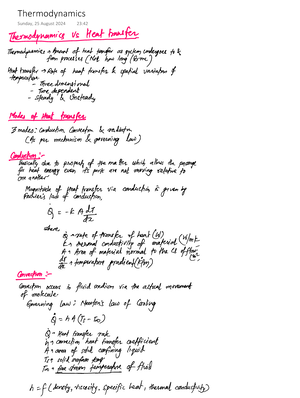 Thermodynamics
Sunday, 25 August 2024 23:42
Thermodynamics vs Heat transfer
Thermodynamics → Amount of heat transfer as system undergoes to &
from processes (Not how long / time)
Heat transfer → Rate of heat transfer & spatial variation of
temperature
- Three dimensional
- Time dependent
- Steady & Unsteady
Modes of Heat transfer
3 modes: Conduction, Convection & radiation
(As per mechanism & governing law)
Conduction:-
Basically due to property of the matter which allow the passage
for heat energy even its parts are not moving relative to
one another
Magnitude of heat transfer via conduction is given by
Fourier's law of conduction,
Q = -k A dT/dx
where
Q → rate of transfer of heat (W)
k → thermal conductivity of material (W/mk)
A → Area of material normal to the
dT/dx → temperature gradient (k/m)
Convection:-
Convection occurs in fluid medium via the actual movement
of molecule.
Governing law: Newton's law of Cooling
Q = h A (Ts - T∞)
Q = Heat transfer rate
h = convection heat transfer coefficient
A = area of solid confining liquid
Ts = solid surface temp
T∞ = free stream temperature of fluid
h = f (density, viscosity, specific heat, thermal conductivity)